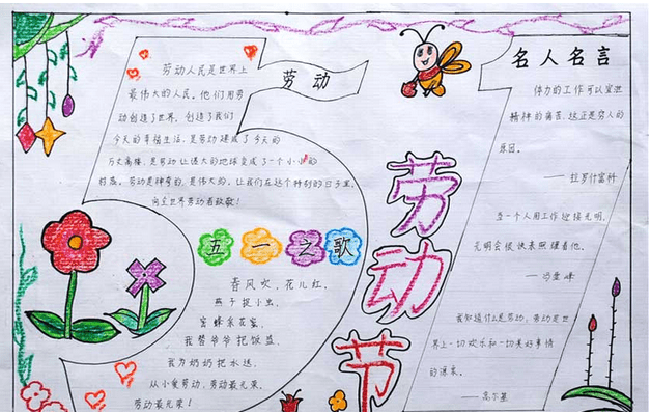 劳动
劳动人民是世界上
最伟大的人民。他们用劳
动创造了世界，创造了我们
今天的幸福生活。是劳动建成了今天的
万丈高楼，是劳动让偌大的地球变成了一个小小的
村落。劳动是神奇的，是伟大的。让我们在这个特别的日子里，
向全世界劳动者致敬！
五一之歌
春风吹，花儿红。
燕子捉小虫，
蜜蜂采花蜜，
我帮爷爷把饭盛，
我为奶奶把水送，
从小爱劳动，劳动最光荣，
劳动最光荣！
劳动节
名人名言
体力的工作可以宽世
精神的痛苦，这正是穷人的
原因。
——拉罗什富科
当一个人用工作迎接光明，
光明会很快来照耀着他。
——冯学峰
我知道什么是劳动，劳动是世
界上一切欢乐和一切美好事情
的源泉。
——高尔基